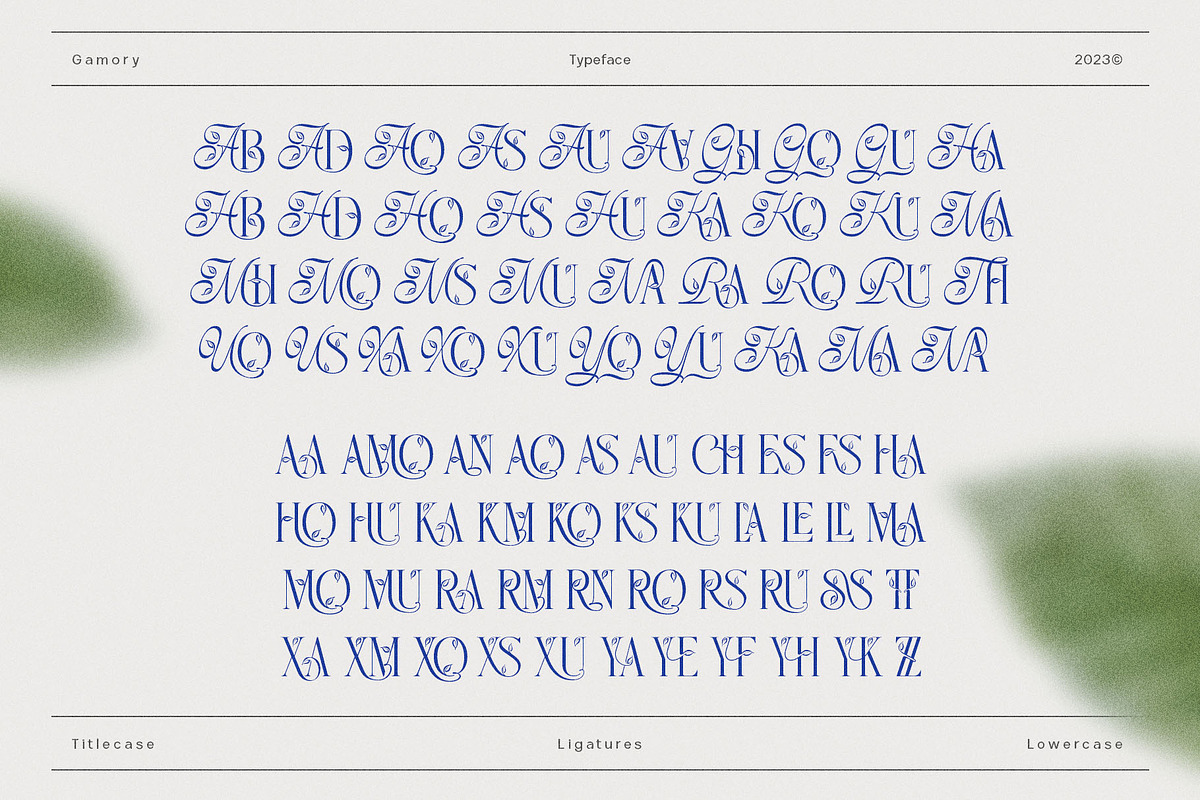 Gamory Typeface 2023©
AB AD AO AS AU AV GH GO GU HA
HB HD HO HS HU KA KO KU MA
MH MO MS MU NR RA RO RU TH
UO US XA XO XU YO YU KA MA NR
AA AMO AN AO AS AU CH ES FS HA
HO HU KA KM KO KS KU LA LE LL MA
MO MU RA RM RN RO RS RU SS TT
XA XM XO XS XU YA YE YF YH YK ZZ
Titlecase Ligatures Lowercase